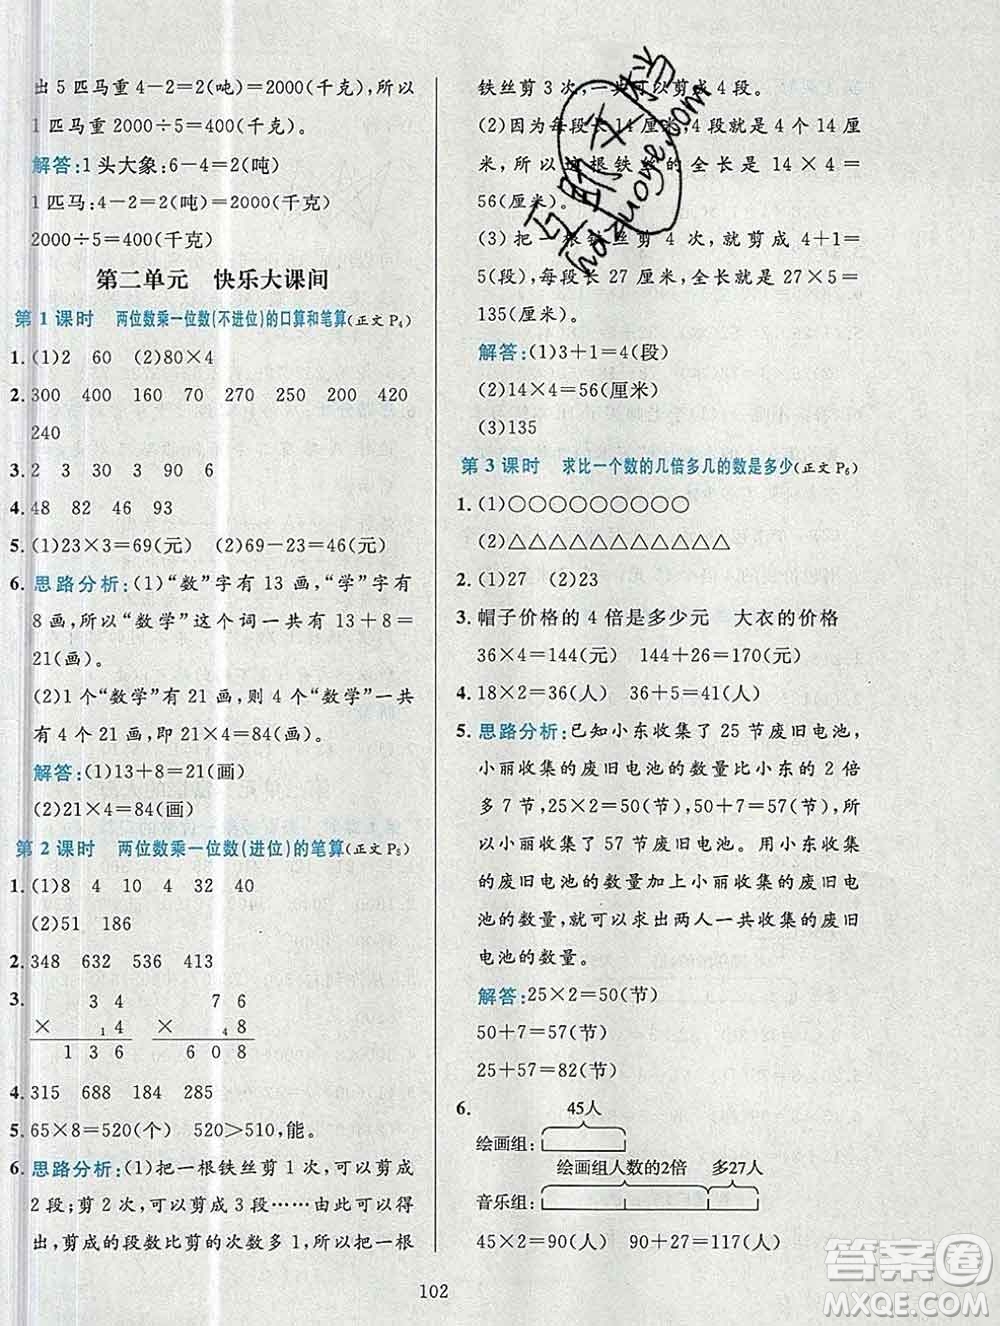 出 5 匹马重 4－2＝2(吨)＝2000(千克)，所以
1 匹马重 2000÷5＝400(千克)。
解答:1 头大象:6－4＝2(吨)
1 匹马:4－2＝2(吨)＝2000(千克)
2000÷5＝400(千克)
第二单元　快乐大课间
第 1 课时　两位数乘一位数(不进位)的口算和笔算(正文 P4)
1. (1)2　60　(2)80×4
2. 300　400　160　70　270　250　200　420
240
3. 2　4　2　1
4. 48　82　46　93
5. (1)23×3＝69(元)　(2)69－23＝46(元)
6. 思路分析:(1)“数”字有 13 画，“学”字有
8 画，所以“数学”这个词一共有 13＋8＝
21(画)。
(2)1 个“数学”有 21 画，则 4 个“数学”一共
有 4 个 21 画，即 21×4＝84(画)。
解答:(1)13＋8＝21(画)
(2)21×4＝84(画)
第 2 课时　两位数乘一位数(进位)的笔算(正文 P5)
1. (1)8　4　10　4　32　40
(2)51　186
2. 348　632　536　413
3. 3 4　7 6
× 1 4　× 4 8
1 3 6　6 0 8
4. 315　688　184　285
5. 65×8＝520(个)　520＞510，能。
6. 思路分析:(1)把一根铁丝剪 1 次，可以剪成
2 段；剪 2 次，可以剪成 3 段……由此可以得
出，剪成的段数比剪的次数多 1，所以把一根
铁丝剪 3 次，一共可以剪成 4 段。
(2)因为每段长 14 厘米，4 段就是 4 个 14 厘
米，所以这根铁丝的全长是 14×4＝
56(厘米)。
(3)把一根铁丝剪 4 次，剪成 4＋1＝
5(段)，每段长 27 厘米，全长是 27×5＝
135(厘米)。
解答:(1)3＋1＝4(段)
(2)14×4＝56(厘米)
(3)135
第 3 课时　求比一个数的几倍多几的数是多少(正文 P6)
1. (1)○○○○○○○○○
(2)△△△△△△△△△△△
2. (1)27　(2)23
3. 帽子价格的 4 倍是多少元　大衣的价格
36×4＝144(元)　144＋26＝170(元)
4. 18×2＝36(人)　36＋5＝41(人)
5. 思路分析:已知小东收集了 25 节废旧电池，
小丽收集的废旧电池的数量比小东的 2 倍
多 7 节，25×2＝50(节)，50＋7＝57(节)，所
以小丽收集了 57 节废旧电池。用小东收集
的废旧电池的数量加上小丽收集的废旧电
池的数量，就可以求出两人一共收集的废旧
电池的数量。
解答:25×2＝50(节)
50＋7＝57(节)
25＋57＝82(节)
6. 45人
绘画组:
绘画组人数的2倍　多27人
音乐组:
45×2＝90(人)　90＋27＝117(人)
102
互助文体当
hdzuoye.com
答案圈
MXQE.COM